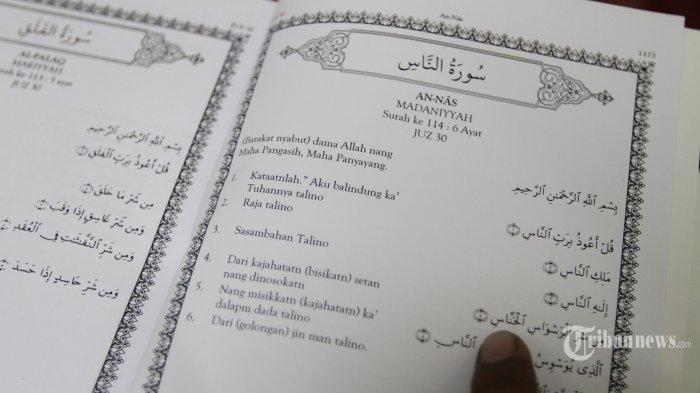 سُورَةُ الفَلَقِ
AL-FALAQ
MAKIYYAH
Surah ke 113 : 5 Ayat
JUZ 30
بِسْمِ اللَّهِ الرَّحْمَٰنِ الرَّحِيمِ
قُلْ أَعُوذُ بِرَبِّ الْفَلَقِ ١
مِن شَرِّ مَا خَلَقَ ٢
وَمِن شَرِّ غَاسِقٍ إِذَا وَقَبَ ٣
وَمِن شَرِّ النَّفَّاثَاتِ فِي الْعُقَدِ ٤
وَمِن شَرِّ حَاسِدٍ إِذَا حَسَدَ ٥
An-Nâs
1173
سُورَةُ النَّاسِ
AN-NÂS
MADANIYYAH
Surah ke 114 : 6 Ayat
JUZ 30
(Barakat nyabut) dama Allah nang
Maha Pangasih, Maha Panyayang.
بِسْمِ اللَّهِ الرَّحْمَٰنِ الرَّحِيمِ
1. Kataatnlah." Aku balindung ka'
Tuhannya talino
قُلْ أَعُوذُ بِرَبِّ النَّاسِ ١
2. Raja talino
مَلِكِ النَّاسِ ٢
3. Sasambahan Talino
إِلَٰهِ النَّاسِ ٣
4. Dari kajahatatn (bisikatn) setan
nang dinosokatn
الْوَسْوَاسِ الْخَنَّاسِ ٤
5. Nang misikkatn (kajahatatn) ka'
dalapm dada talino
الَّذِي يُوَسْوِسُ
النَّاسِ ٥
6. Dari (golongan) jin man talino.
Tribunnews.com